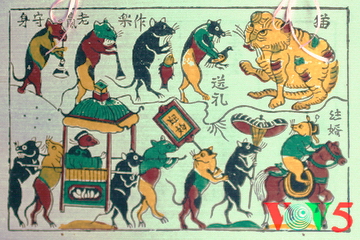 猫
作楽
老鼠守身
送礼
結婚
VOV5